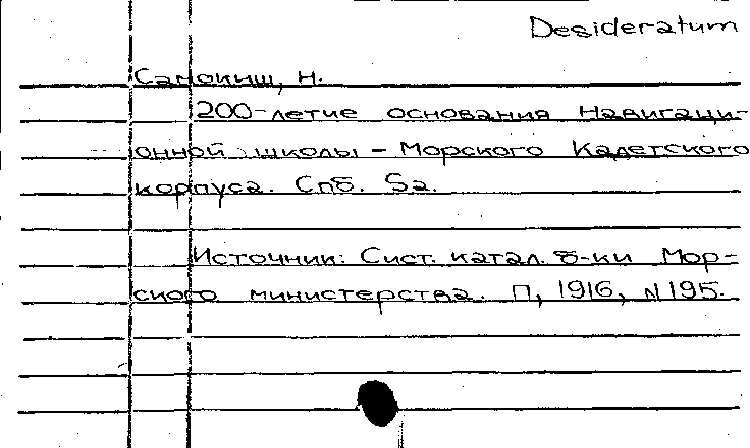 Desideratum
Самокиш, Н.
200-летие основания Навигаци-
онной школы - Морского Кадетского
корпуса. Спб. Sa.
Источник: Сист. катал. б-ки Мор-
ского министерства. П, 1916, N 195.